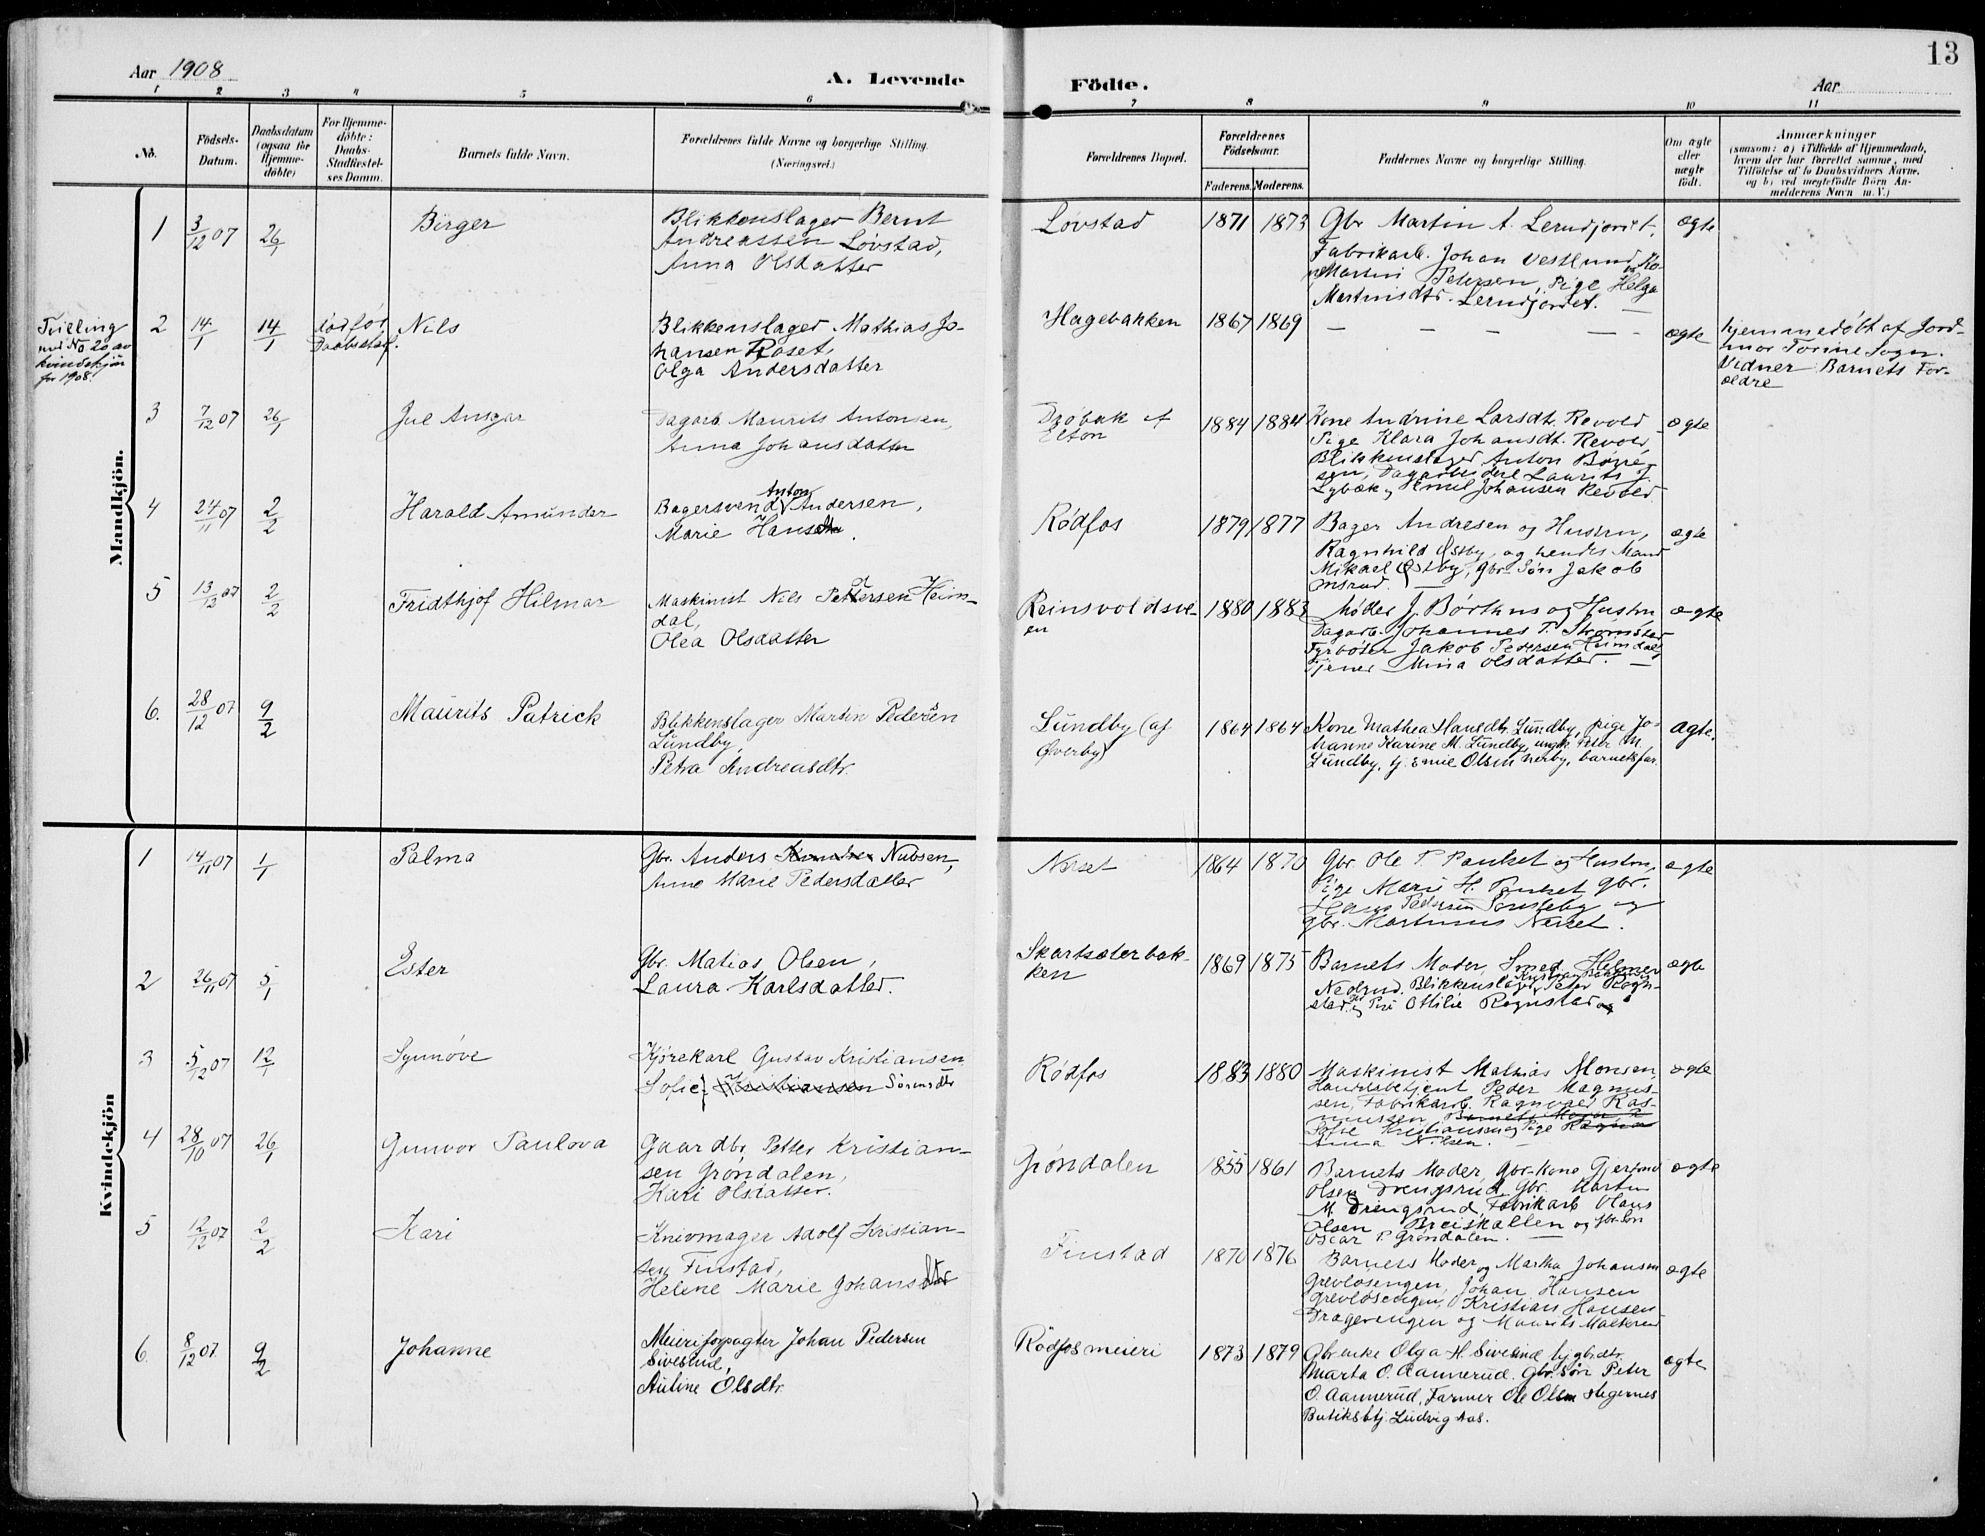 13
Aar 1908
A. Levende
Födte.
Aar
1 2 3 4 5 6
7 8 9 10 11
No.
Födsels-
Datum.
Daabsdatum
(ogsaa för
Hjemme-
döbte)
For Hjemme-
döbte:
Daabs-
Stadfæstel-
ses Datum.
Barnets fulde Navn.
Forældrenes fulde Navne og borgerlige Stilling.
(Næringsvei.)
Forældrenes Bopæl.
Forældrenes
Födselsaar.
Faderens. Moderens.
Faddernes Navne og borgerlige Stilling.
Om ægte
eller
uægte
födt.
Anmærkninger
(saasom: a) i Tilfælde af Hjemmedaab,
hvem der har forrettet samme, med
Tilföielse af to Daabsvidners Navne,
og b) ved uægtefödte Börn An-
melderens Navn m. V.)
Mandkjön.
1 3/12 07 26/1 Birger
Blikkenslager Bernt
Andreassen Lövstad,
Anna Olsdatter
Lövstad 1871 1873
Gbr Martin A. Lerudjordet,
Fabrikarb. Johan Vestlund, Ko-
ne Martini Petersen, Pige Helga
Martinsdtr. Lerudjordet.
ægte
Tvilling
med No 20 av
kvindekjön
for 1908.
2 14/1 14/1 död før
Daabsstadf.
Nils
Blikkenslager Mathias Jo-
hansen Roset,
Olga Andersdatter
Hagebakken 1867 1869
— — — —
ægte
hjemmedøbt af Jord-
mor Torine Sogn.
Vidner Barnets For-
ældre
3 7/12 07 26/1 Jul Ansgar
Dagarb. Maurits Antonsen,
Anna Johansdatter
Drøbak af
Elton
1884 1884
Kone Andrine Larsdt. Revold
Pige Klara Johansdt. Revold,
Blikkenslager Anton
sen, Laurits J.
Lybæk, Emil Johansen Revold
ægte
4 24/11 07 2/2 Harald Amunder
Bagersvend Anton Andersen,
Marie Hans
Rødfos 1879 1877
Bager Andresen og Hustru,
Ragnhild Østby, og hendes Mand
Mikael Østby, Gbr Søn Jakob
ægte
5 13/12 07 2/2 Fridthjof Hilmar
Maskinist Nils Pettersen Heim-
dal,
Olea Olsdatter
Reinsvoldsve-
en
1880 1883
Møder J. Børthus og Hustru
Dagarb. Johannes P. Strømstad
Fyrbøter Jakob Pedersen Heimdal
Tjener Mina Olsdatter.
ægte
6. 28/12 07 9/2 Maurits Patrick
Blikkenslager Martin Pedersen
Lundby,
Petra Andreasdtr.
Lundby (af
Øverby)
1864 1864
Kone Mathea Hansdtr. Lundby, pige Jo-
hanne Karine M. Lundby, ungk. Peter M.
Lundby, Emil Olsen Nerby, barnets far.
ægte.
Kvindekjön
1 14/11 07 1/1 Palma
Gbr. Anders Nilsen,
Anne Marie Pedersdatter
Neset 1864 1870
Gbr. Ole P. Pauket og Hustru,
Pige Marie H. Pauket gbr.
Hans Pedersen og
gbr. Martinus Neset.
ægte
2 26/11 07 5/1 Ester
Gbr. Matias Olsen,
Laura Karlsdatter.
Skartsæterbak-
ken
1869 1875
Barnets Moder, Smed Helmer
Nedrud, Blikkenslager Peter Rogn-
stad, Pige Ottilie Rognstad
ægte
3 5/12 07 12/1 Synnöve
Kjörekarl Gustav Kristiansen
Sofie Kristiansen Sörensdtr
Rødfos 1883 1880
Maskinist Mathias Monsen,
Handelsbetjent Peder Magnus-
sen, Fabrikarb. Ragnvald Ras-
mussen, Barnets Moder
Sofie Kristiansen, Pige Ragna
Anna Nilsen.
ægte
4 28/10 07 26/1 Gunvor Paulova
Gaardbr. Petter Kristian-
sen Grøndalen,
Kari Olsdatter.
Grøndalen 1855 1861
Barnets Moder, Gbr-Kone Gjertrud
Olsen Drengsrud, Gbr. Martin
M. Drengsrud, Fabrikarb Olaus
Olsen Breiskallen og Gbr Søn
Oscar P. Grøndalen.
ægte
5 12/12 07 2/2 Kari
Knivmager Adolf Kristian-
sen Finstad,
Helene Marie Johansdtr
Finstad 1870 1876
Barnets Moder og Martha Johansen
Grevlosengen, Johan Hansen
Grevlosengen, Kristian Hansen
Dragerengen og Maurits
ægte
6. 8/12 07 9/2 Johanne
Meieriforpagter Johan Pedersen
Sivesind,
Auline Olsdtr.
Rødfos meieri 1873 1879
Gbr enke Olga H. Sivesind, gbrdtr.
Marta O. Aannerud, Gbr. søn Peter
O. Aannerud, Farmer Ole Olsen Hegernes
Butiksbtj. Ludvig Aas.
ægte